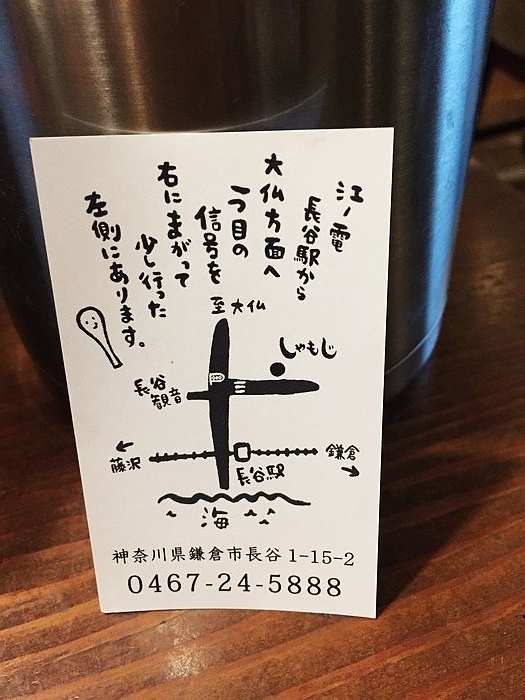 江ノ電
長谷駅から
大仏方面へ
一つ目の
信号を
右にまがって
少し行った
左側にあります。
至大仏
しゃもじ
長谷
観音
藤沢
鎌倉
長谷駅
海
神奈川県鎌倉市長谷 1-15-2
0467-24-5888